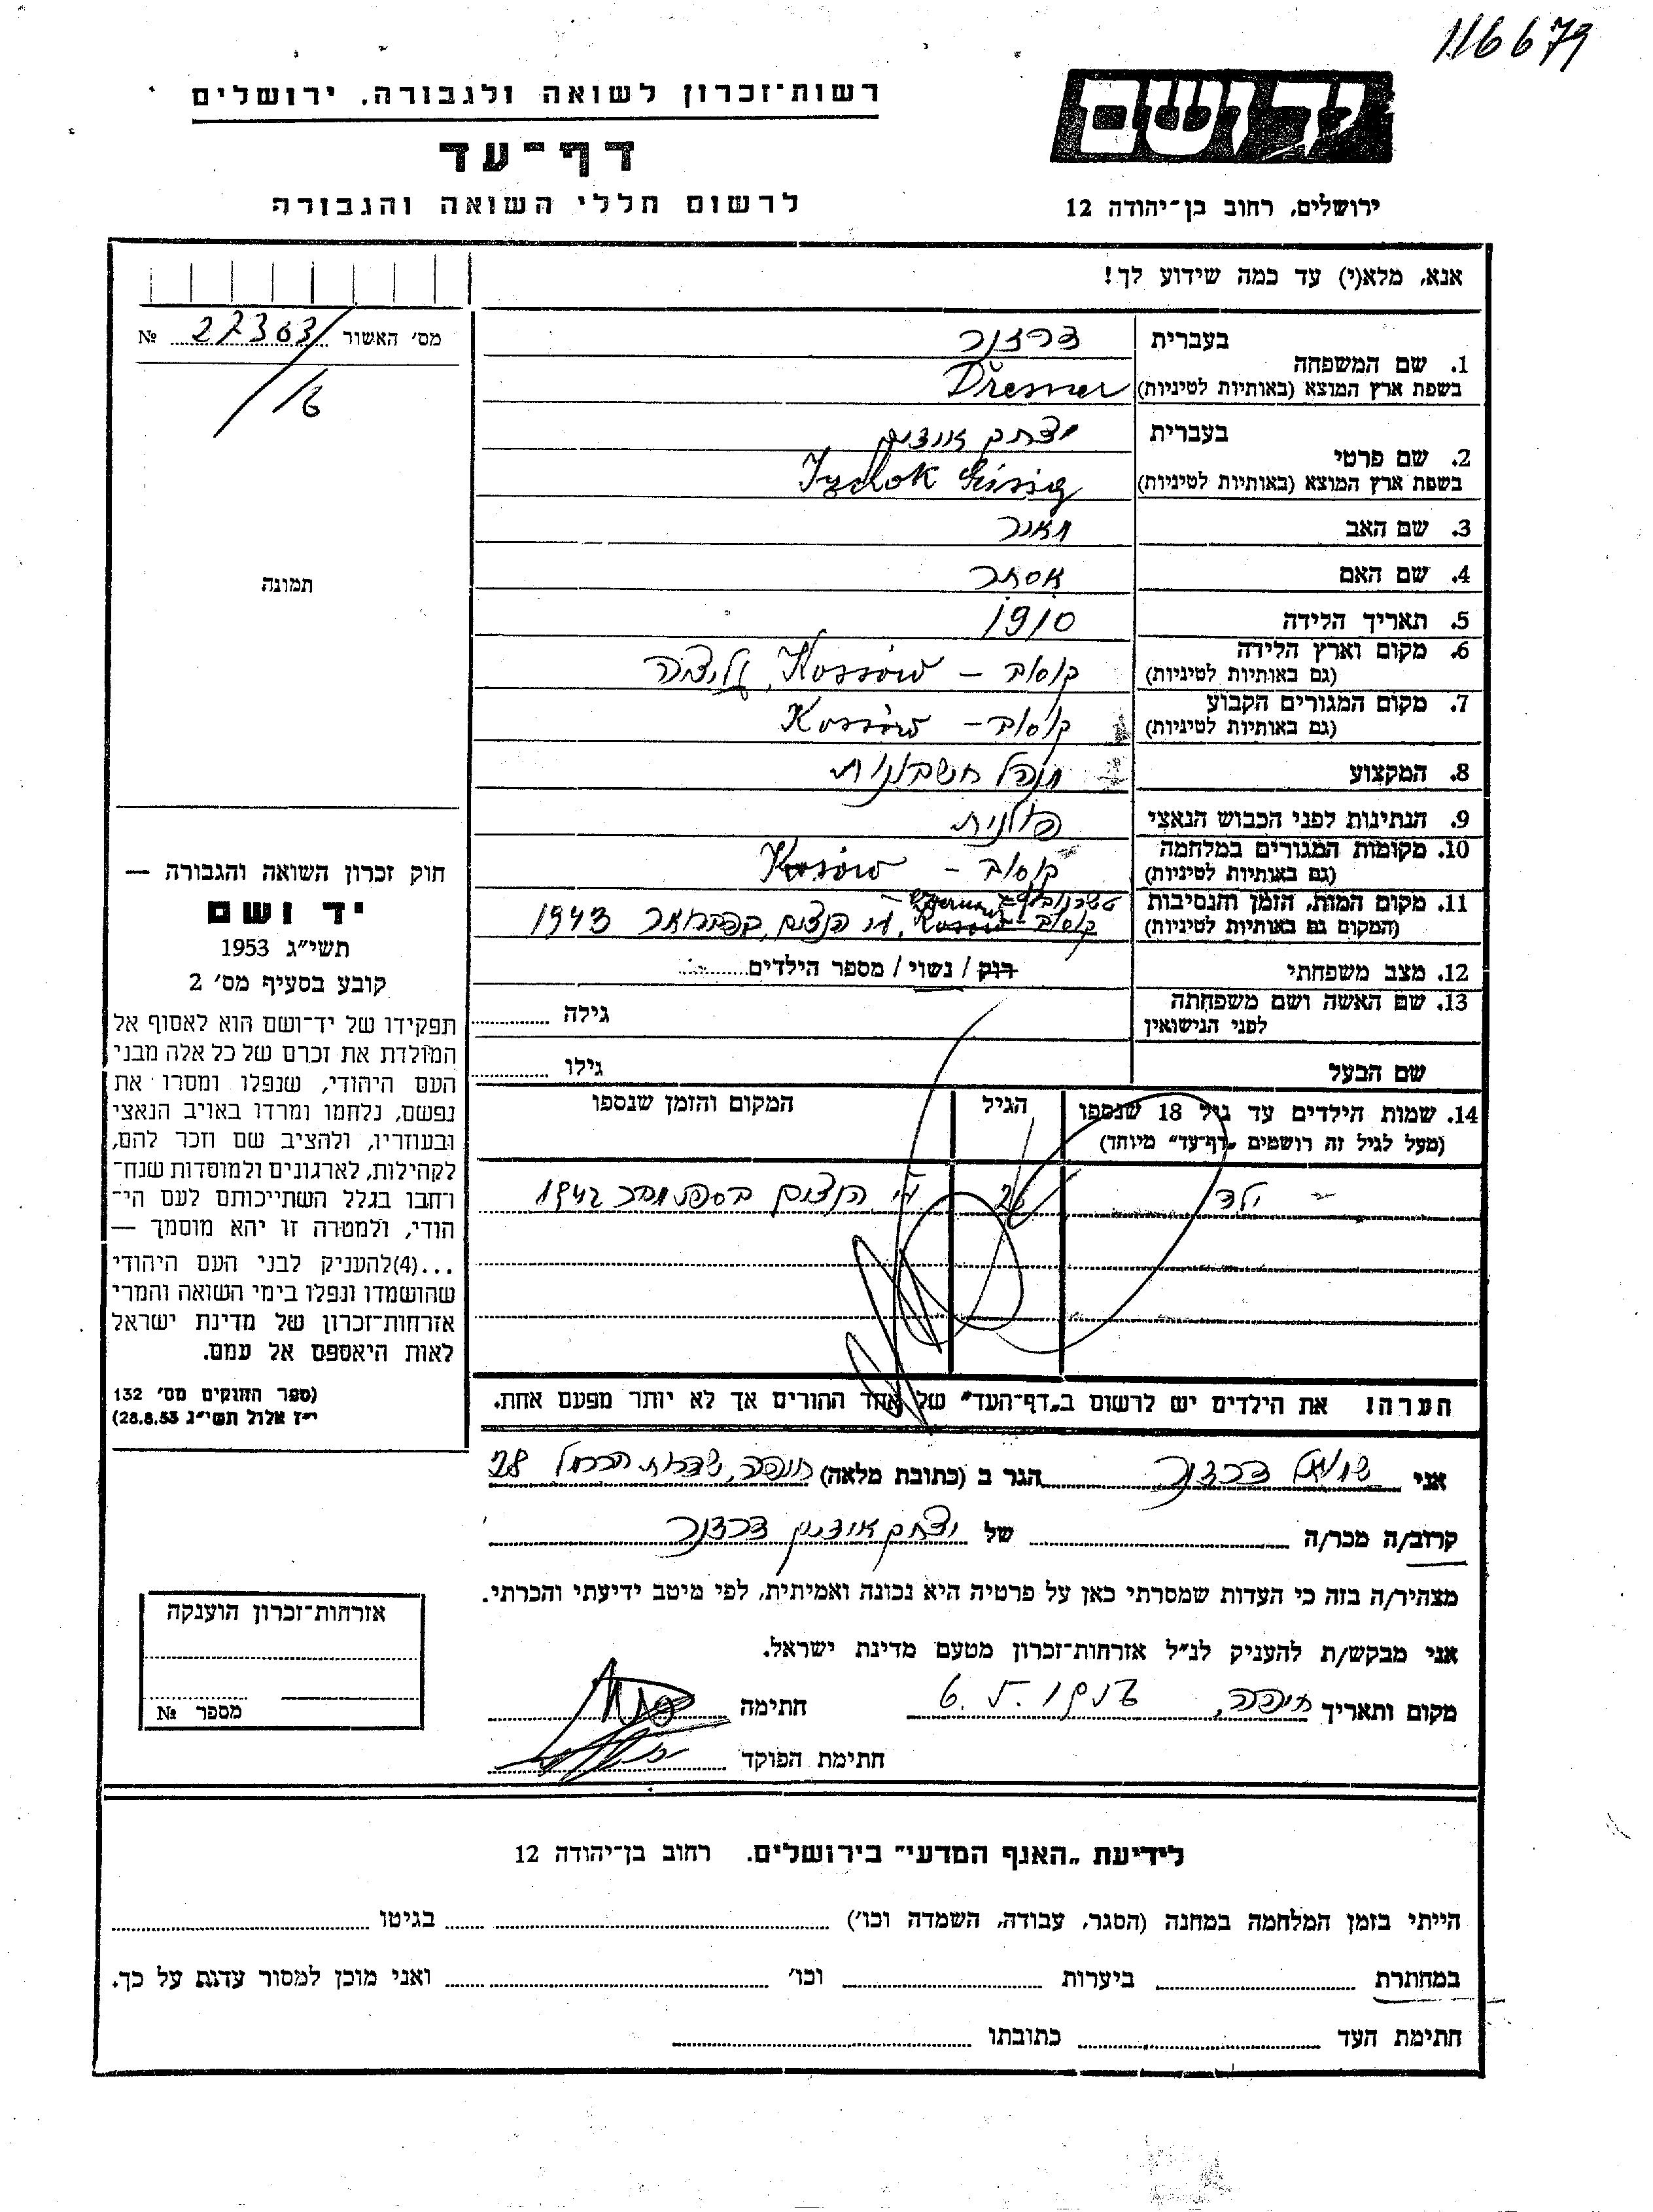 116679
יד ושם
ירושלים, רחוב בן־יהודה 12
רשות־זכרון לשואה ולגבורה, ירושלים
דף־עד
לרשום חללי השואה והגבורה
אנא, מלא(י) עד כמה שידוע לך!
מס' האשור 27363 №
/6
תמונה
1. שם המשפחה
בעברית דרזנר
בשפת ארץ המוצא (באותיות לטיניות) Dresner
2. שם פרטי
בעברית יצחק אויזיג
בשפת ארץ המוצא (באותיות לטיניות) Izchok
3. שם האב מאיר
4. שם האם אסתר
5. תאריך הלידה 1910
6. מקום וארץ הלידה
(גם באותיות לטיניות) קוסוב – Kossów, גליציה
7. מקום המגורים הקבוע
(גם באותיות לטיניות) קוסוב – Kossów
8. המקצוע מנהל חשבונות
9. הנתינות לפני הכבוש הנאצי פולנית
10. מקומות המגורים במלחמה
(גם באותיות לטיניות) קוסוב – Kosów
11. מקום המות, הזמן והנסיבות
(המקום גם באותיות לטיניות) קוסוב – Kossów, ע״י הנאצים, בפברואר 1943
12. מצב משפחתי רוק / נשוי / מספר הילדים
13. שם האשה ושם משפחתה
לפני הנישואין גילה
שם הבעל גילו
14. שמות הילדים עד גיל 18 שנספו
(מעל לגיל זה רושמים „דף־עד״ מיוחד)
הגיל
המקום והזמן שנספו
ילד 2 ע״י הנאצים בספטמבר 1942
הערה! את הילדים יש לרשום ב„דף־העד״ של אחד ההורים אך לא יותר מפעם אחת.
חוק זכרון השואה והגבורה —
יד ושם
תשי״ג 1953
קובע בסעיף מס' 2
תפקידו של יד־ושם הוא לאסוף אל
המולדת את זכרם של כל אלה מבני
העם היהודי, שנפלו ומסרו את
נפשם, נלחמו ומרדו באויב הנאצי
ובעוזריו, ולהציב שם וזכר להם,
לקהילות, לארגונים ולמוסדות שנח־
רחבו בגלל השתייכותם לעם הי־
הודי, ולמטרה זו יהא מוסמך —
...(4)להעניק לבני העם היהודי
שהושמדו ונפלו בימי השואה והמרי
אזרחות־זכרון של מדינת ישראל
לאות היאספם אל עמם.
(ספר החוקים מס' 132
י״ז אלול תשי״ג 28.8.53)
אני שמואל דרזנר הגר ב (כתובת מלאה) חיפה, שדרות הכרמל 28
קרוב/ה מכר/ה של יצחק אויזיג דרזנר
מצהיר/ה בזה כי העדות שמסרתי כאן על פרטיה היא נכונה ואמיתית, לפי מיטב ידיעתי והכרתי.
אני מבקש/ת להעניק לנ״ל אזרחות־זכרון מטעם מדינת ישראל.
מקום ותאריך חיפה, חתימה
חתימת הפוקד
אזרחות־זכרון הוענקה
מספר №
לידיעת „האגף המדעי״ בירושלים. רחוב בן־יהודה 12
הייתי בזמן המלחמה במחנה (הסגר, עבודה, השמדה וכו') בגיטו
במחתרת ביערות וכו' ואני מוכן למסור עדות על כך.
חתימת העד כתובתו